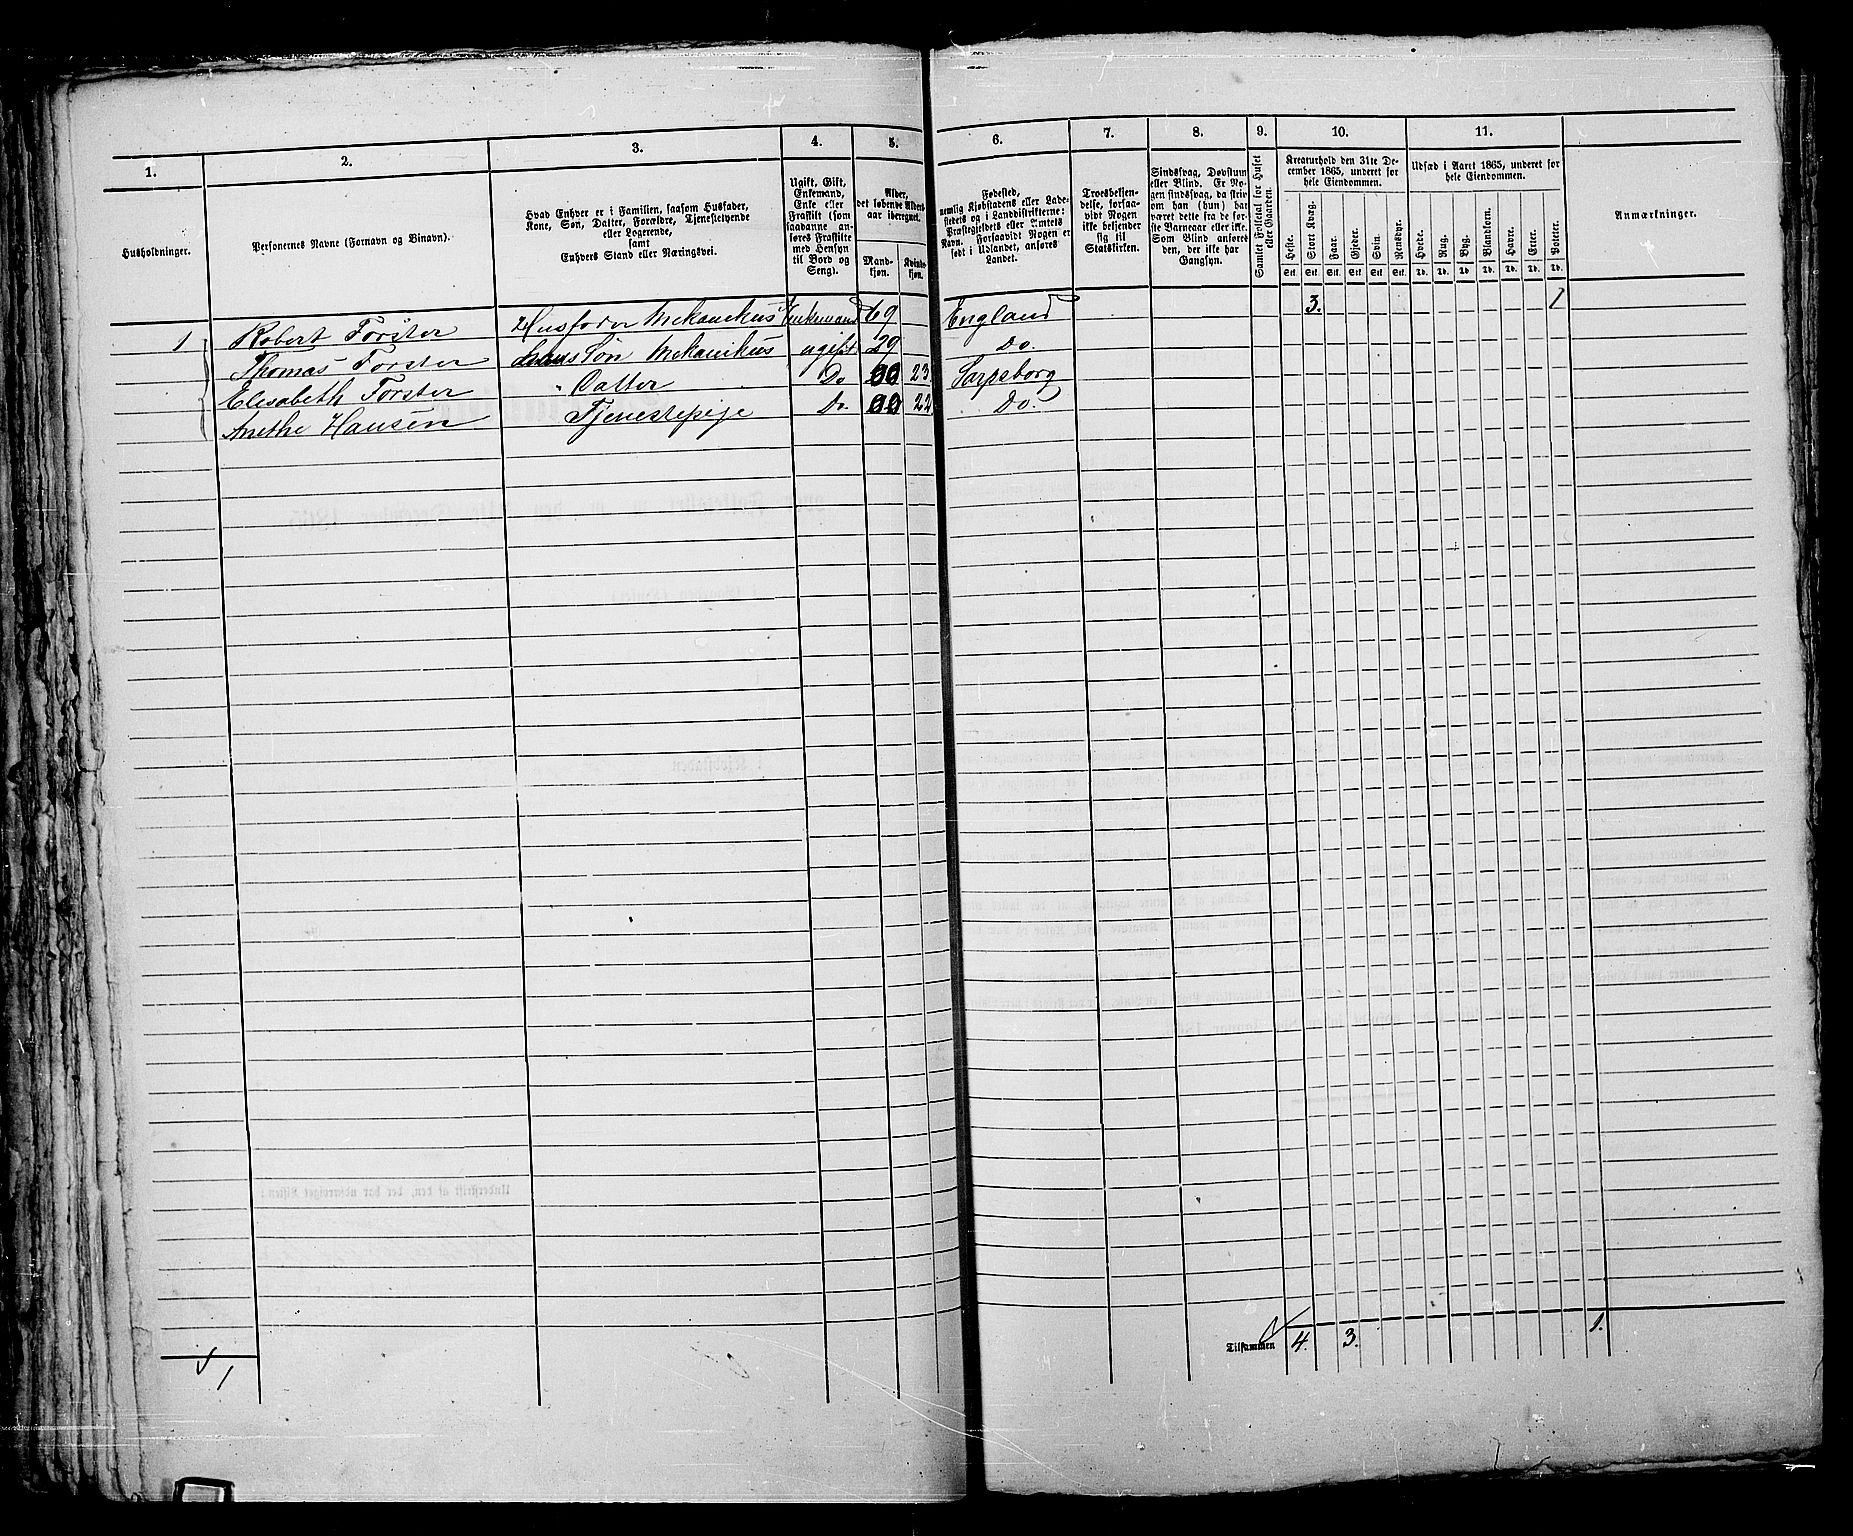 1. 2. 3. 4. 5. 6. 7. 8. 9. 10. 11.
Husholdninger.
Personernes Navne (Fornavn og Binavn).
Hvad Enhver er i Familien, saasom Husfader,
Kone, Søn, Datter, Forældre, Tjenestetyende
eller Logerende,
samt
Enhvers Stand eller Næringsvei.
Ugift, Gift,
Enkemand,
Enke eller
Fraskilt (som
saadanne an-
føres Fraskilte
med Hensyn
til Bord og
Seng).
Alder,
det løbende Alders-
aar iberegnet.
Mand-
kjøn.
Kvinde-
kjøn.
Fødested,
nemlig Kjøbstadens eller Lade-
stedets og i Landdistrikterne:
Præstegjeldets eller Amtets
Navn. Forsaavidt Nogen er
født i Udlandet, anføres
Landet.
Troesbekjen-
delse, forsaa-
vidt Nogen
ikke bekjender
sig til
Statskirken.
Sindssvag, Døvstum
eller Blind. Er No-
gen sindssvag, da skriv
om han (hun) har
været dette fra de før-
ste Barneaar eller ikke.
Som Blind anføres
den, der ikke har
Gangsyn.
Samlet Folketal for Huset
eller Gaarden.
Kreaturhold den 31te De-
cember 1865, underet for
hele Eiendommen.
Heste. Stort Kvæg. Faar. Gjeder. Svin. Rensdyr.
Stk. Stk. Stk. Stk. Stk. Stk.
Udsæd i Aaret 1865, underet for
hele Eiendommen.
Hvede. Rug. Byg. Blandkorn. Havre. Erter. Poteter.
Td. Td. Td. Td. Td. Td. Td.
Anmærkninger.
1 Robert Forster Husfader Mekanikus Enkemand 69 England 3. 1
Thomas Forster hans Søn Mekanikus ugift 29 Do.
Elisabeth Forster " Datter Do 23 Sarpsborg
Anethe Hansen Tjenestepige Do. 22 Do.
Tilsammen 4. 3. 1.
1